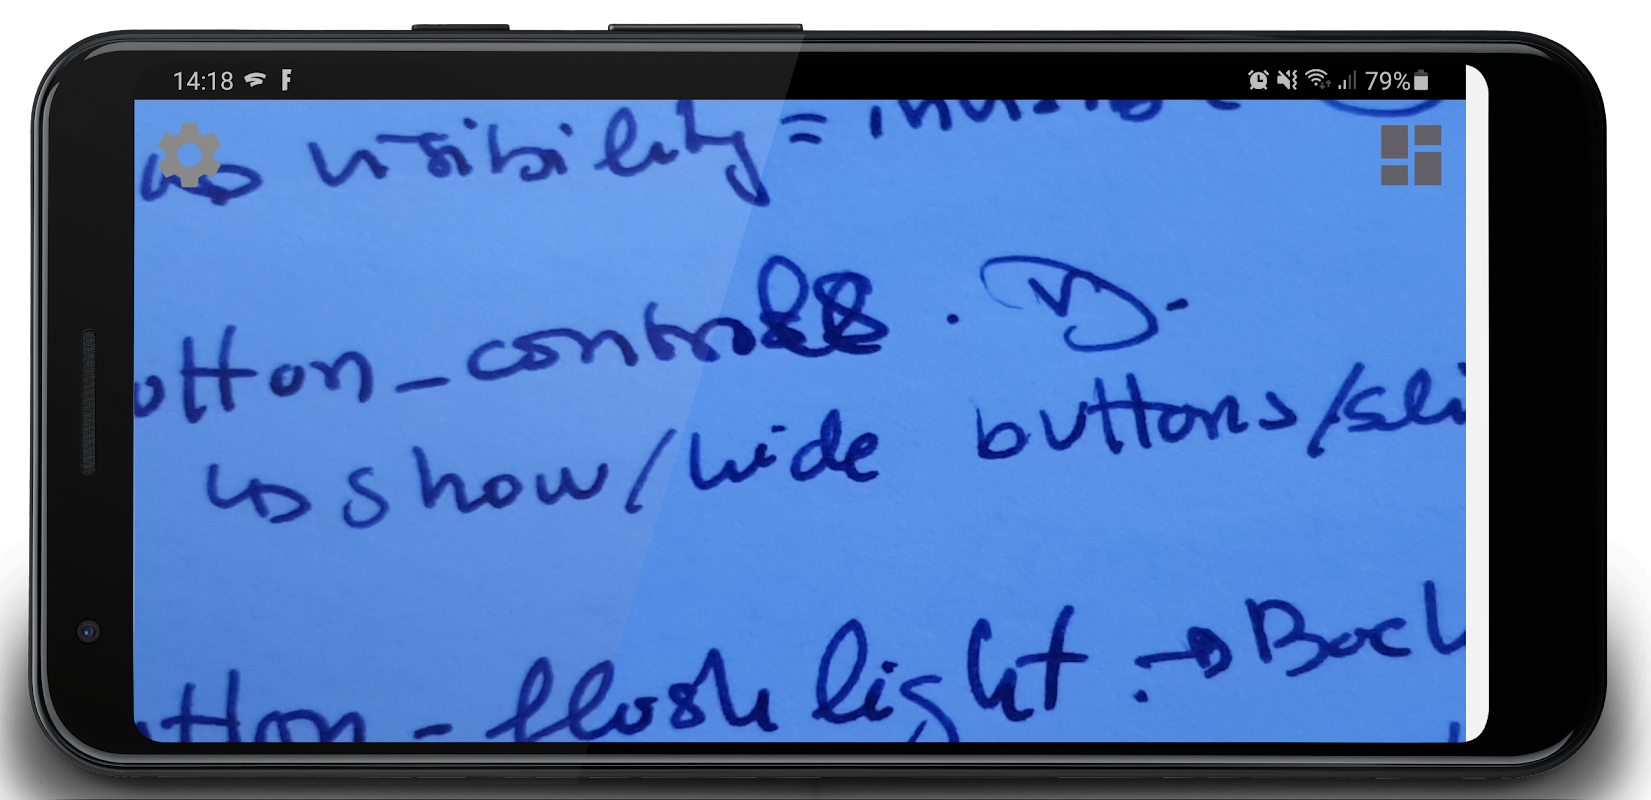 14:18 79%
↳ visibility = invisible
otton_controls .
↳ show/hide buttons/sli
tton - flash light . → Back